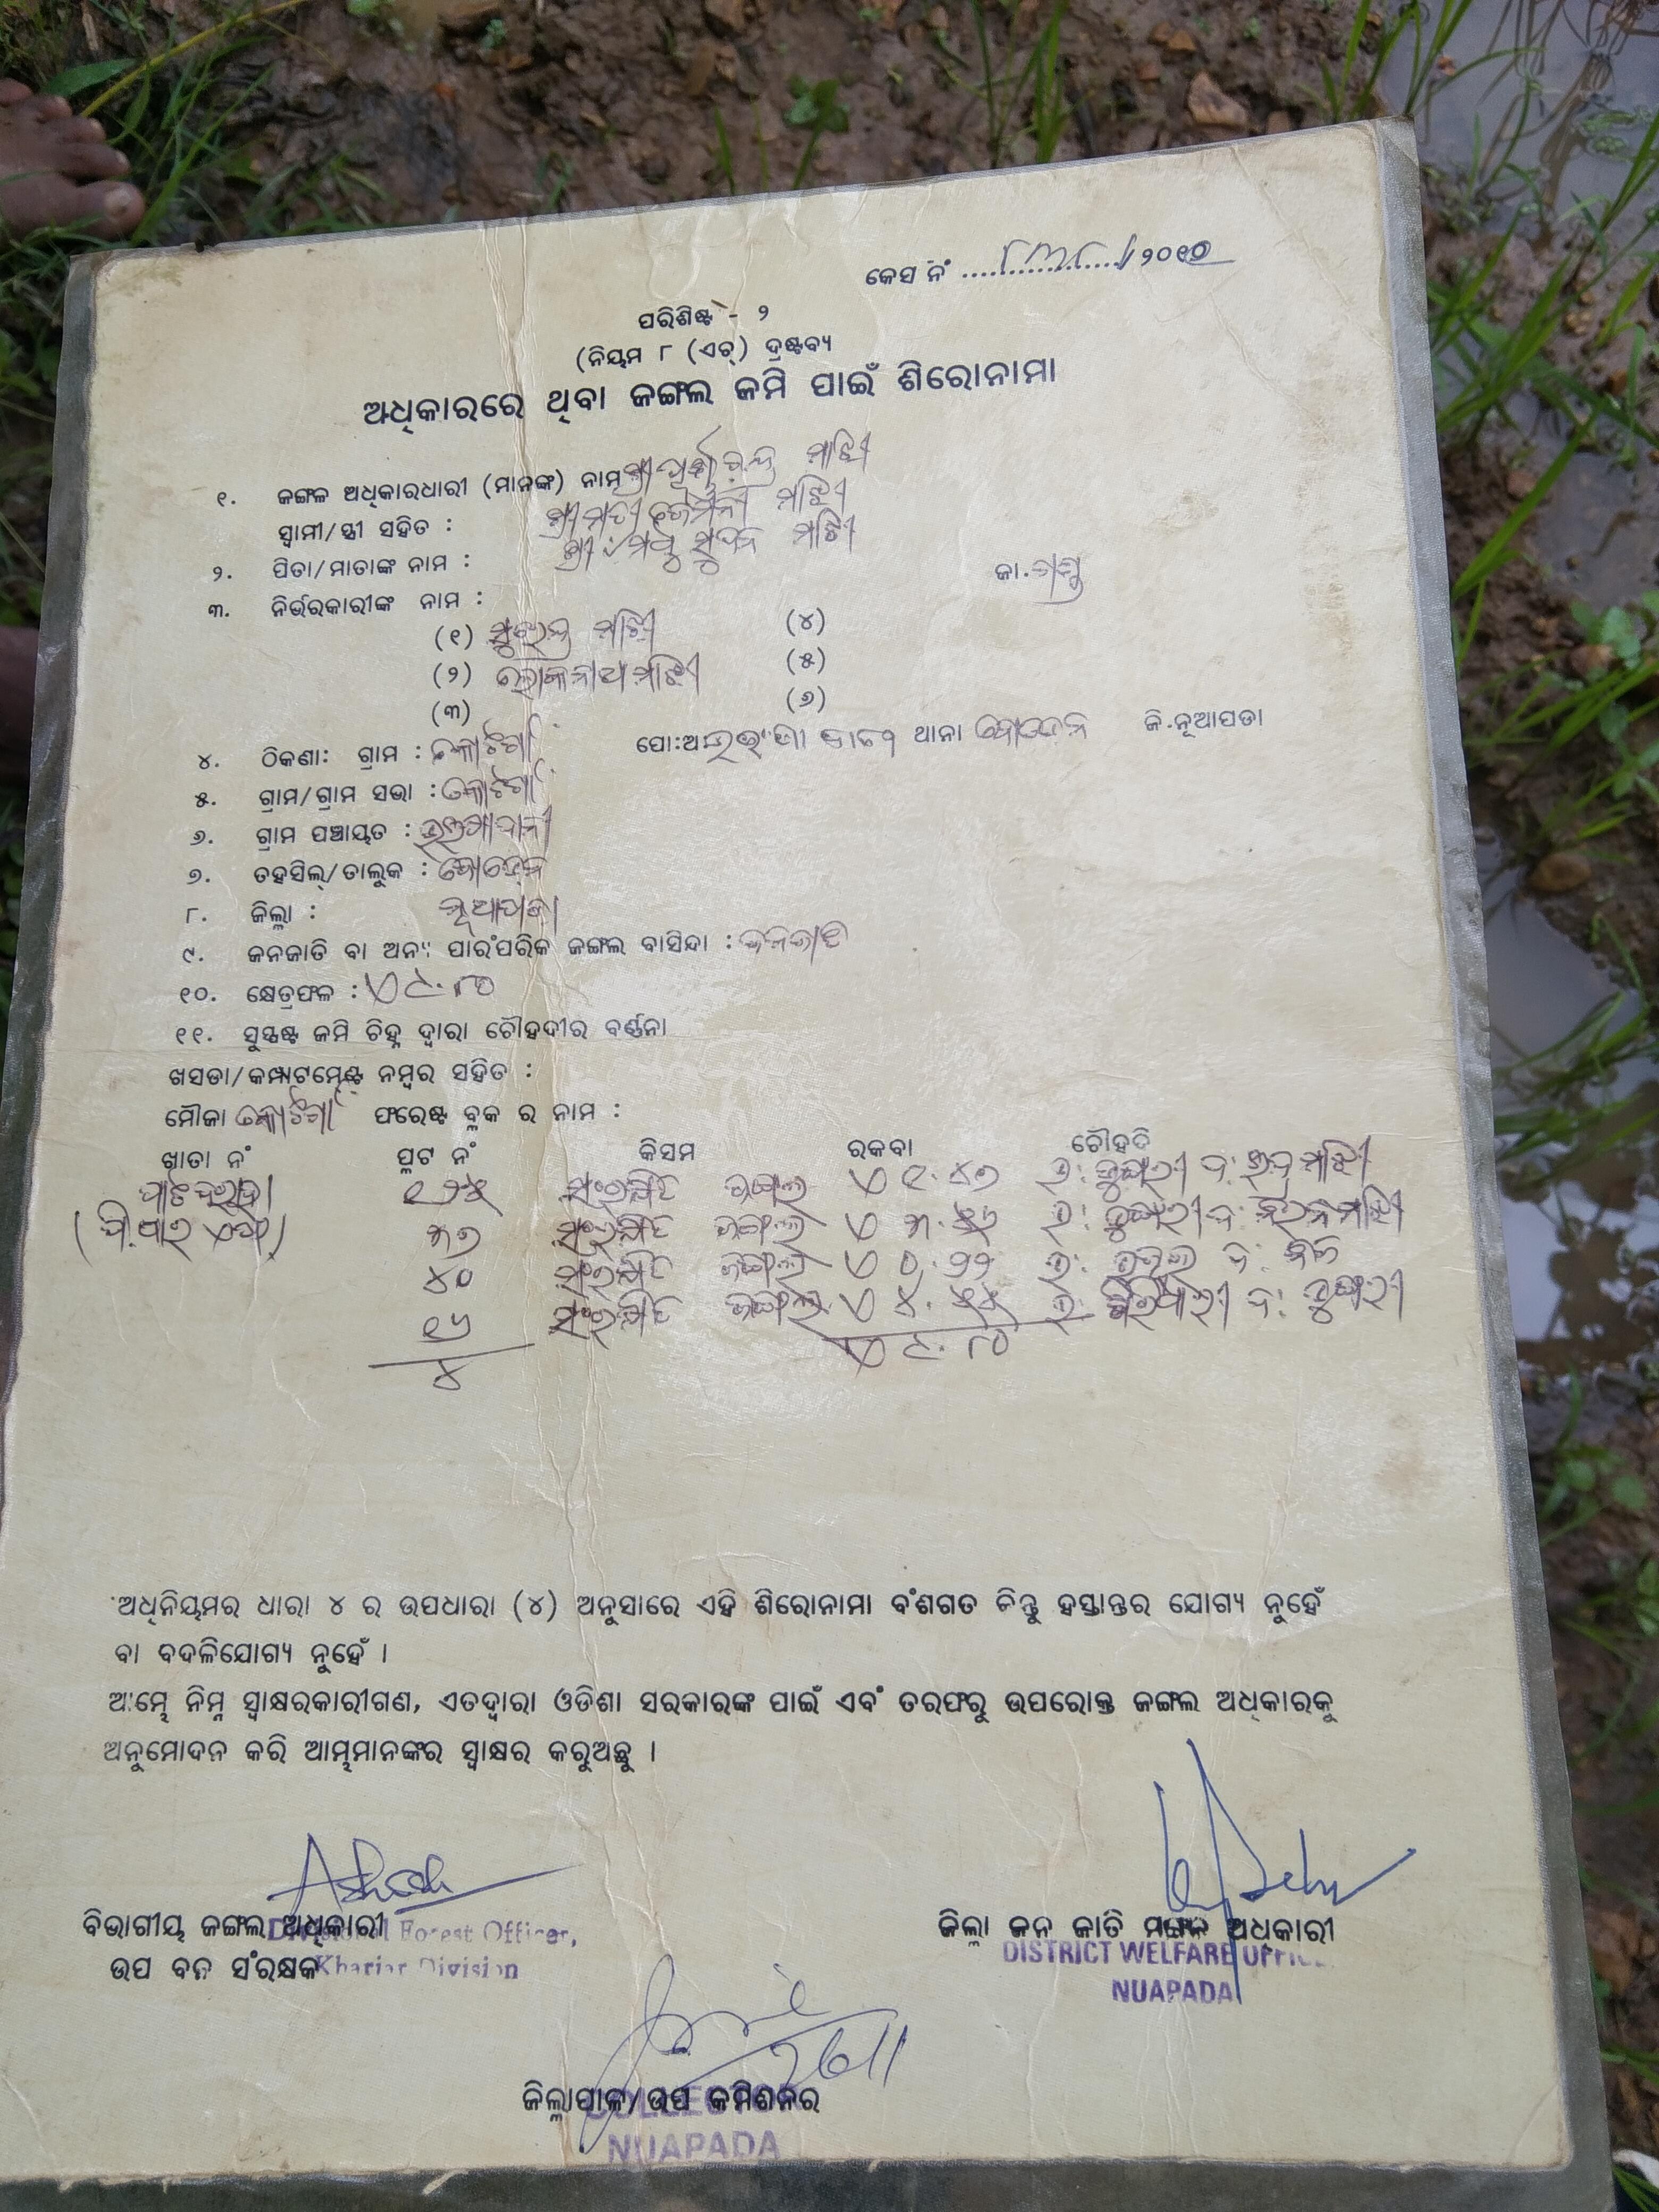 କେସ ନଂ ....................../୨୦୧୦
ପରିଶିଷ୍ଟ - ୨
(ନିୟମ ୮ (ଏଚ୍) ଦ୍ରଷ୍ଟବ୍ୟ
ଅଧିକାରରେ ଥିବା ଜଙ୍ଗଲ ଜମି ପାଇଁ ଶିରୋନାମା
୧. ଜଙ୍ଗଲ ଅଧିକାରଧାରୀ (ମାନଙ୍କ) ନାମ ଶ୍ରୀ ମାଝୀ
ସ୍ୱାମୀ/ସ୍ତ୍ରୀ ସହିତ : ଶ୍ରୀମତୀ ମାଝୀ
୨. ପିତା/ମାତାଙ୍କ ନାମ : ଶ୍ରୀ ମଧୁ ସୁଦନ ମାଝୀ ଜା. ଗଣ୍ଡ
୩. ନିର୍ଭରକାରୀଙ୍କ ନାମ :
(୧) ମାଝୀ (୪)
(୨) ଲୋକନାଥ ମାଝୀ (୫)
(୩) (୬)
୪. ଠିକଣା: ଗ୍ରାମ : କୋଟଗାଁ ପୋ: ଥାନା ବୋଡେନ ଜି.ନୂଆପଡା
୫. ଗ୍ରାମ/ଗ୍ରାମ ସଭା : କୋଟଗାଁ
୬. ଗ୍ରାମ ପଞ୍ଚାୟତ :
୭. ତହସିଲ୍/ତାଲୁକ : ବୋଡେନ
୮. ଜିଲ୍ଲା : ନୂଆପଡା
୯. ଜନଜାତି ବା ଅନ୍ୟ ପାରଂପରିକ ଜଙ୍ଗଲ ବାସିନ୍ଦା : ଜନଜାତି
୧୦. କ୍ଷେତ୍ରଫଳ : ଏ ୯.୮୦
୧୧. ସୁସ୍ପଷ୍ଟ ଜମି ଚିହ୍ନ ଦ୍ୱାରା ଚୌହଦୀର ବର୍ଣ୍ଣନା
ଖସଡା/କମ୍ପାଟମେଣ୍ଟ ନମ୍ବର ସହିତ :
ମୌଜା କୋଟଗାଁ ଫରେଷ୍ଟ ବ୍ଲକ ର ନାମ :
ଖାତା ନଂ ପ୍ଲଟ ନଂ କିସମ ରକବା ଚୌହଦି
୧୨୫ ସଂରକ୍ଷିତ ଜଙ୍ଗଲ ଏ ୧.୪୭ ଉ: ଡୁଙ୍ଗରୀ ଦ: ମାଝୀ
(ପି.ଆର ଏଫ) ୩୭ ସଂରକ୍ଷିତ ଜଙ୍ଗଲ ଏ ୩.୫୬ ଉ: ଡୁଙ୍ଗରୀ ଦ: ମାଝୀ
୪୦ ସଂରକ୍ଷିତ ଜଙ୍ଗଲ ଏ ୦.୨୨ ଉ: ଦ: ନିଜ
୧୬ ସଂରକ୍ଷିତ ଜଙ୍ଗଲ ଏ ୪.୫୫ ଉ: ଦ: ଡୁଙ୍ଗରୀ
୪ ଏ ୯.୮୦
ଅଧିନିୟମର ଧାରା ୪ ର ଉପଧାରା (୪) ଅନୁସାରେ ଏହି ଶିରୋନାମା ବଂଶଗତ କିନ୍ତୁ ହସ୍ତାନ୍ତର ଯୋଗ୍ୟ ନୁହେଁ
ବା ବଦଳିଯୋଗ୍ୟ ନୁହେଁ ।
ଆମ୍ଭେ ନିମ୍ନ ସ୍ୱାକ୍ଷରକାରୀଗଣ, ଏତଦ୍ୱାରା ଓଡିଶା ସରକାରଙ୍କ ପାଇଁ ଏବଂ ତରଫରୁ ଉପରୋକ୍ତ ଜଙ୍ଗଲ ଅଧିକାରକୁ
ଅନୁମୋଦନ କରି ଆମ୍ଭମାନଙ୍କର ସ୍ୱାକ୍ଷର କରୁଅଛୁ ।
ବିଭାଗୀୟ ଜଙ୍ଗଲ ଅଧିକାରୀ
Divisional Forest Officer,
ଉପ ବନ ସଂରକ୍ଷକ
Khariar Division
ଜିଲ୍ଲା ଜନ ଜାତି ମଙ୍ଗଳ ଅଧିକାରୀ
DISTRICT WELFARE OFFICER
NUAPADA
ଜିଲ୍ଲାପାଳ/ଉପ କମିଶନର
COLLECTOR
NUAPADA